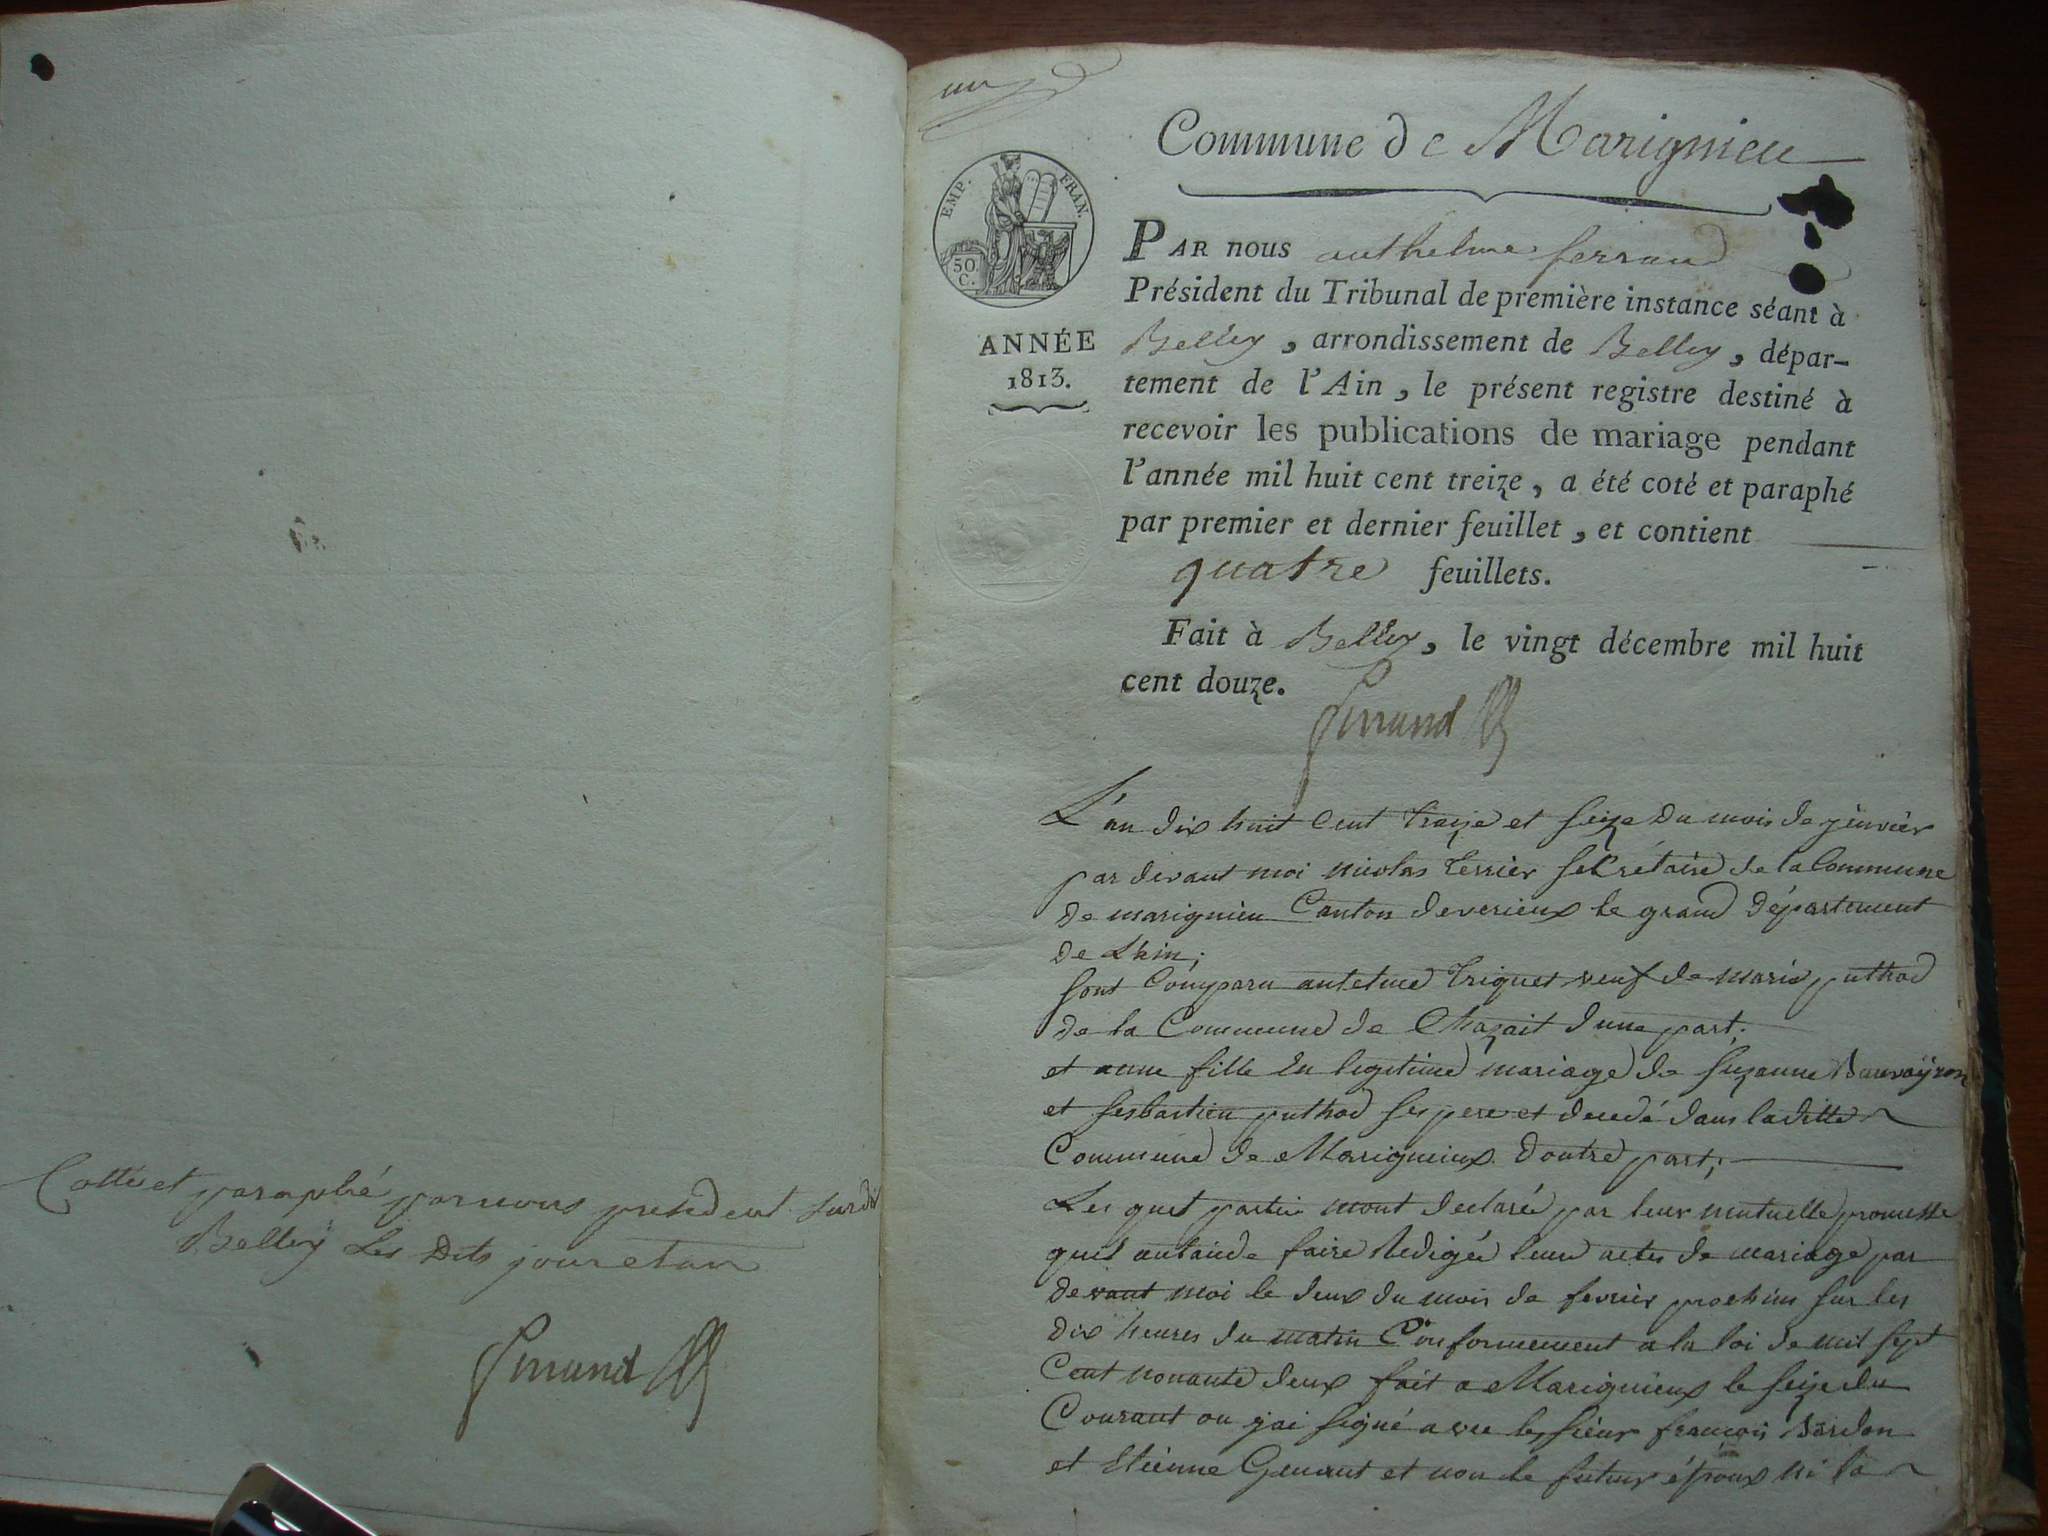 Cotté et paraphé par nous president susdit
Belley Les Dits jour et an
Ferrand
un
Commune de Marignieu
EMP. FRAN.
50.
C.
ANNÉE
1813.
PAR nous anthelme ferrand
Président du Tribunal de première instance séant à
Belley, arrondissement de Belley, dépar-
tement de l'Ain, le présent registre destiné à
recevoir les publications de mariage pendant
l'année mil huit cent treize, a été coté et paraphé
par premier et dernier feuillet, et contient
quatre feuillets.
Fait à Belley, le vingt décembre mil huit
cent douze.
Ferrand
L'an dix huit Cent traize et seize du mois de jenvier
par devant moi nicolas terrier sekrétaire de la Commune
de marignieu Canton de verieux le grand département
de Lhin;
sont Comparu antelme triquet veuf de marie puthod
de la Commune de Chazait d'une part;
et anne fille en legitime mariage de suzanne
et sesbastien puthod ses pere et decedé dans laditte
Commune de Marignieux d'outre part;
Les quel partie mont declaré par leur mutuelle promesse
quil antande faire Redigée leur actes de mariage par
devant moi le deux du mois de fevrier prochins sur les
dix heures du matin Conformement a la loi de mil sept
Cent nonante deux fait a Marignieux le seize du
Courant ou jai signé avec les sieur françois
et Etienne et non le futur époux ni la